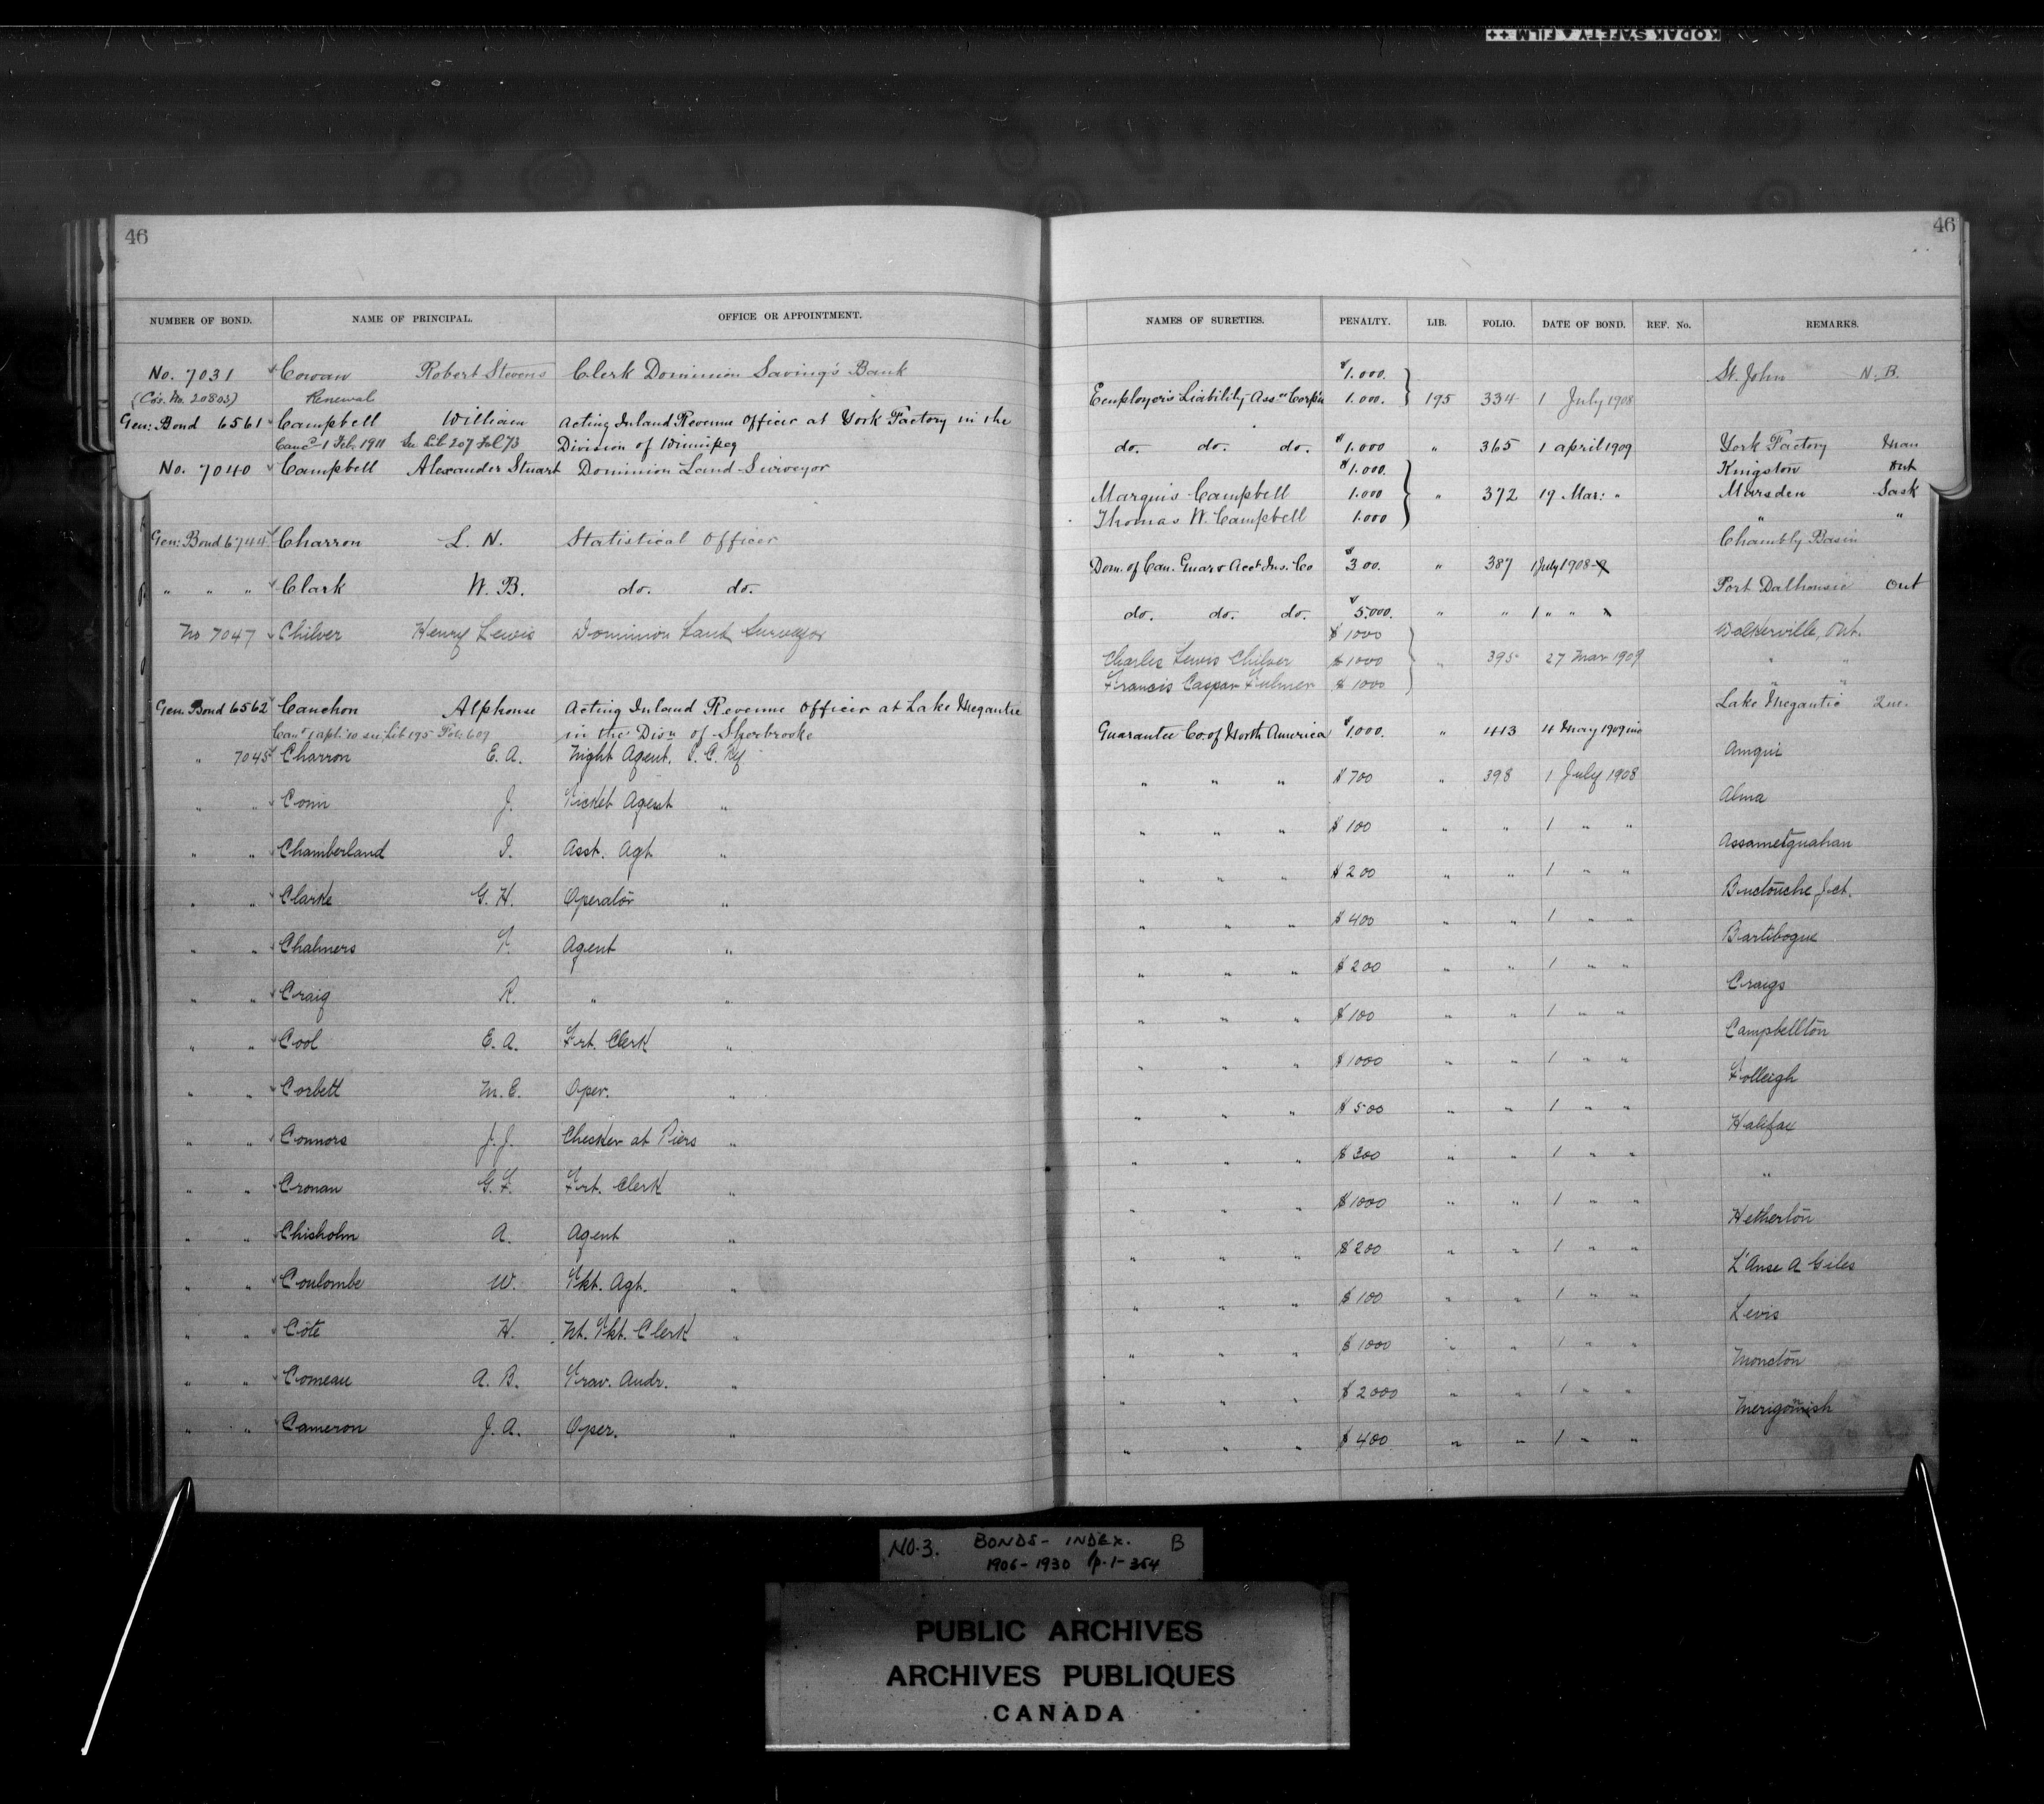 KODAK SAFETY FILM ++
46
46
NUMBER OF BOND. NAME OF PRINCIPAL. OFFICE OR APPOINTMENT. NAMES OF SURETIES. PENALTY. LIB. FOLIO. DATE OF BOND. REF. No. REMARKS.
No. 7031 Cowan Robert Stevens Clerk Dominion Saving's Bank $1.000. St. John N.B.
(Co's. No. 20803) Renewal Employers Liability Assce Corp'n 1.000. 195 334 1 July 1908
Gen: Bond 6561 Campbell William Acting Inland Revenue Officer at York Factory in the
Canc'd 1 Feb. 1911 See Lib 207 Fol 73 Division of Winnipeg do. do. do. $1.000 " 365 1 april 1909 York Factory Man
No. 7040 Campbell Alexander Stuart Dominion Land Surveyor $1.000. Kingston Ont
Marquis Campbell 1.000 " 372 19 Mar: " Marsden Sask
Thomas W. Campbell 1.000 " "
Gen: Bond 6744 Charron L. N. Statistical Officer Chambly Basin
Dom. of Can. Guar & Acct Ins. Co $300. " 387 1 July 1908-9
" " " Clark W. B. do. do. Port Dalhousie Ont
do. do. do. $5.000. " " 1 " "
No 7047 Chilver Henry Lewis Dominion Land Surveyor $1000 Walkerville, Ont.
Charles Lewis Chilver $1000 " 395 27 Mar 1909 " "
Francis Caspar Fulmer $1000 " "
Gen. Bond 6562 Cauchon Alphonse Acting Inland Revenue Officer at Lake Megantic Lake Megantic Que.
Can'd 1 apl. '10 see Lib 195 Fol. 609 in the Divn of Sherbrooke Guarantee Co. of North America $1.000. " 413 4 May 1909
" 7045 Charron E. A. Night Agent, I. C. Ry. Amqui
" " " $700 " 398 1 July 1908
" " J. Ticket Agent " Alma
" " " $100 " " 1 " "
" " Chamberland I. Asst. Agt. " Assametquahan
" " " $200 " " 1 " "
" " Clarke G. H. Operator " Buctouche Jct.
" " " $400 " " 1 " "
" " Chalmers T. Agent " Bartibogue
" " " $200 " " 1 " "
" " Craig R. " " Craigs
" " " $100 " " 1 " "
" " Cool E. A. Frt. Clerk " Campbellton
" " " $1000 " " 1 " "
" " Corbett M. E. Oper. " Folleigh
" " " $500 " " 1 " "
" " Connors J. J. Checker at Piers " Halifax
" " " $300 " " 1 " "
" " Cronan G. F. Frt. Clerk " "
" " " $1000 " " 1 " "
" " Chisholm A. Agent " Hetherton
" " " $200 " " 1 " "
" " Coulombe W. Tkt. Agt. " L'Anse A Giles
" " " $100 " " 1 " "
" " Côté H. Nt. Tkt. Clerk " Levis
" " " $1000 " " 1 " "
" " Comeau A. B. Trav. Audr. " Moncton
" " " $2000 " " 1 " "
" " Cameron J. A. Oper. " Merigomish
" " " $400 " " 1 " "
NO.3. BONDS - INDEX. B
1906-1930 Pp. 1-354
PUBLIC ARCHIVES
ARCHIVES PUBLIQUES
CANADA